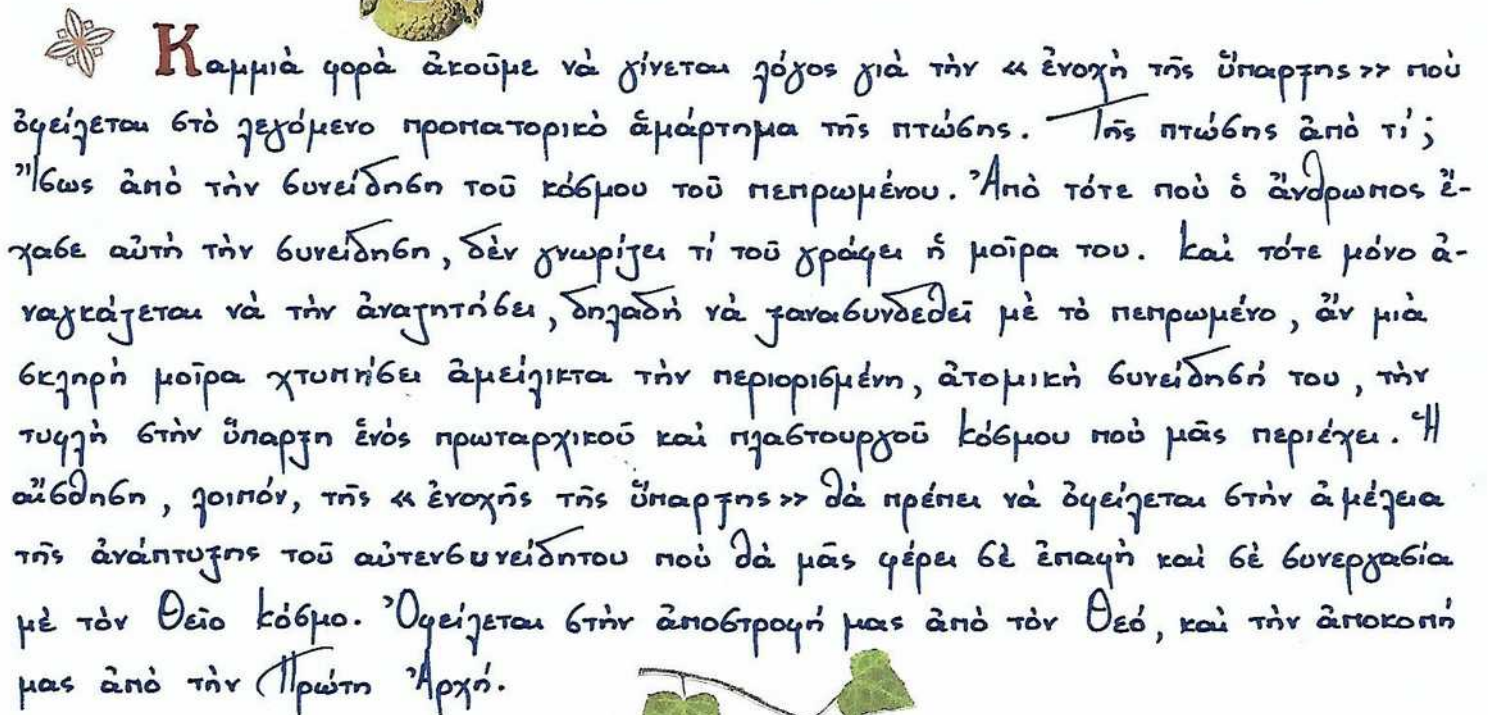 Καμμιὰ φορὰ ἀκοῦμε νὰ γίνεται λόγος γιὰ τὴν « ἐνοχὴ τῆς ὕπαρξης » ποὺ
ὀφείλεται στὸ λεγόμενο προπατορικὸ ἁμάρτημα τῆς πτώσης. Τῆς πτώσης ἀπὸ τί;
Ἴσως ἀπὸ τὴν συνείδηση τοῦ κόσμου τοῦ πεπρωμένου. Ἀπὸ τότε ποὺ ὁ ἄνθρωπος ἔ-
χασε αὐτὴ τὴν συνείδηση, δὲν γνωρίζει τί τοῦ γράφει ἡ μοῖρα του. Καὶ τότε μόνο ἀ-
ναγκάζεται νὰ τὴν ἀναζητήσει, δηλαδὴ νὰ ξανασυνδεθεῖ μὲ τὸ πεπρωμένο, ἂν μιὰ
σκληρὴ μοῖρα χτυπήσει ἀμείλικτα τὴν περιορισμένη, ἀτομικὴ συνείδησή του, τὴν
τυφλὴ στὴν ὕπαρξη ἑνός πρωταρχικοῦ καὶ πλαστουργοῦ κόσμου ποὺ μᾶς περιέχει. Ἡ
αἴσθηση, λοιπόν, τῆς « ἐνοχῆς τῆς ὕπαρξης » θὰ πρέπει νὰ ὀφείλεται στὴν ἀμέλεια
τῆς ἀνάπτυξης τοῦ αὐτενσυνείδητου ποὺ θὰ μᾶς φέρει σὲ ἐπαφὴ καὶ σὲ συνεργασία
μὲ τὸν Θεῖο Κόσμο. Ὀφείλεται στὴν ἀποστροφή μας ἀπὸ τὸν Θεό, καὶ τὴν ἀποκοπή
μας ἀπὸ τὴν Πρώτη Ἀρχή.